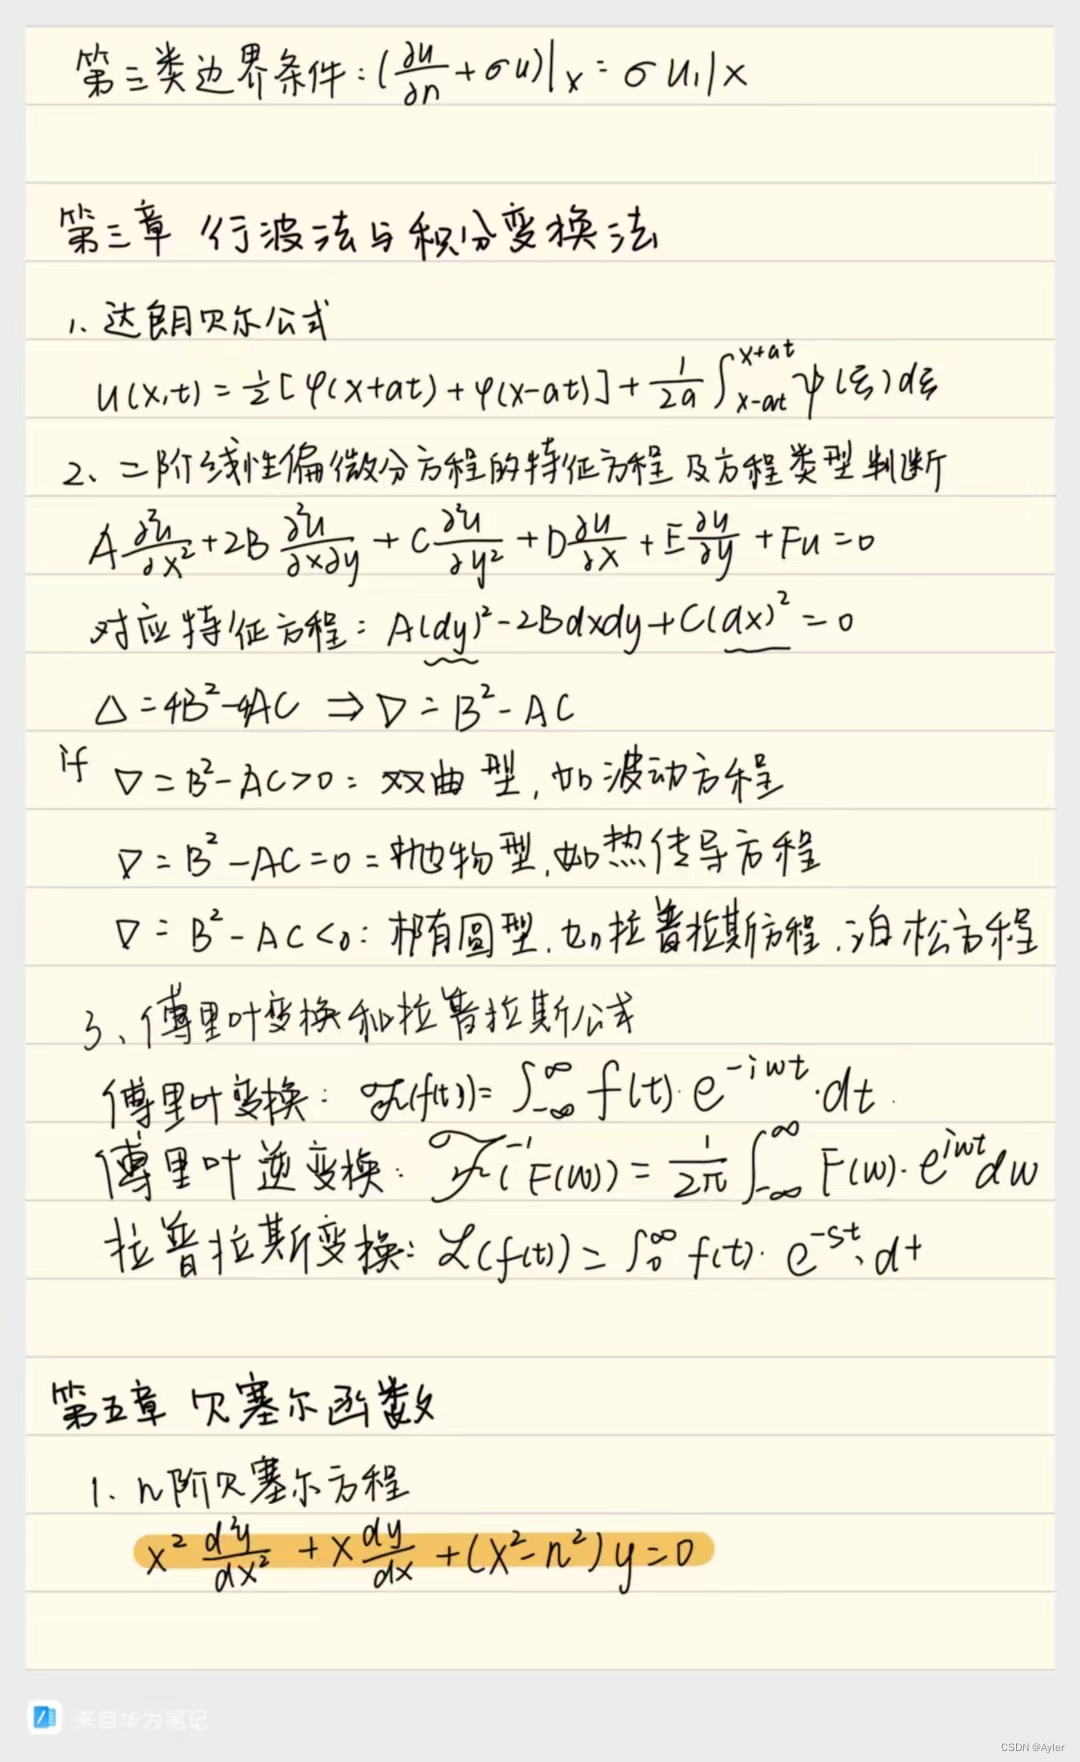 第三类边界条件:(∂u/∂n+σu)|x=σu₁|x
第三章 行波法与积分变换法
1、达朗贝尔公式
u(x,t)=½[φ(x+at)+φ(x-at)]+1/2a ∫_{x-at}^{x+at} ψ(ξ)dξ
2、二阶线性偏微分方程的特征方程及方程类型判断
A ∂²u/∂x²+2B ∂²u/∂x∂y+C ∂²u/∂y²+D ∂u/∂x+E ∂u/∂y+Fu=0
对应特征方程:A(dy)²-2Bdxdy+C(dx)²=0
△=4B²-4AC ⇒ ▽=B²-AC
if ▽=B²-AC>0:双曲型,如波动方程
▽=B²-AC=0:抛物型,如热传导方程
▽=B²-AC<0:椭圆型,如拉普拉斯方程,泊松方程
3、傅里叶变换和拉普拉斯公式
傅里叶变换:ℱ(f(t))=∫_{-∞}^{∞} f(t)·e^{-iwt}·dt.
傅里叶逆变换:ℱ⁻¹(F(w))=1/2π ∫_{-∞}^{∞} F(w)·e^{iwt}dw
拉普拉斯变换:ℒ(f(t))=∫_0^∞ f(t)·e^{-st}·dt
第五章 贝塞尔函数
1. n阶贝塞尔方程
x² d²y/dx²+x dy/dx+(x²-n²)y=0
来自华为笔记
CSDN @Ayler